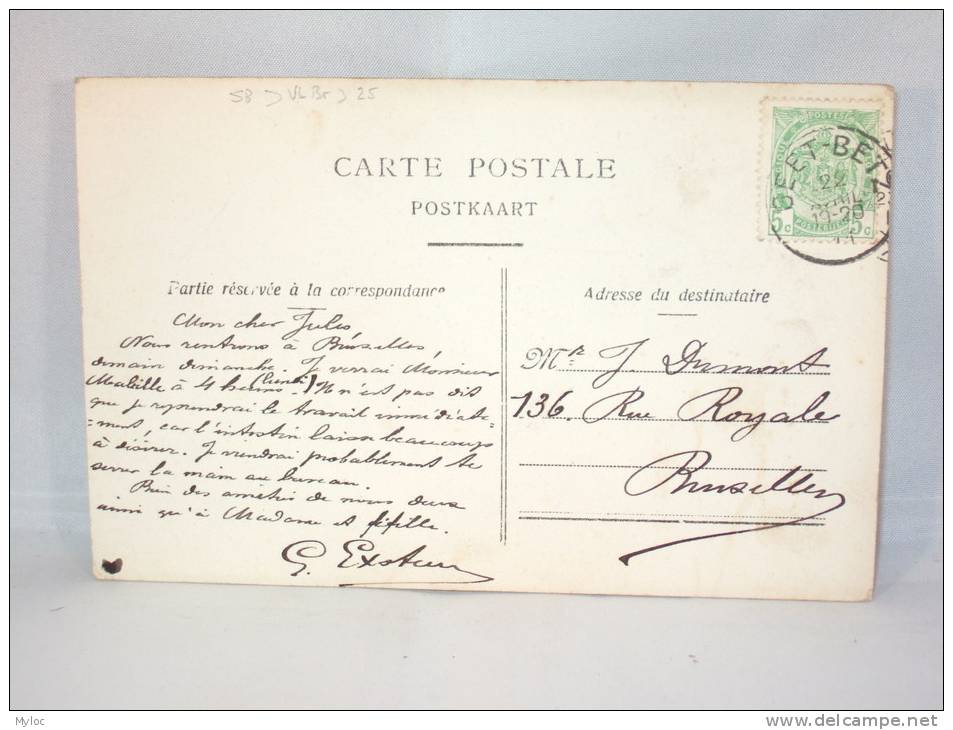 58 > Vl Br > 25
CARTE POSTALE
POSTKAART
POSTES
5c 5c
BEET-BETZ
22
AVRIL
19-20
11
Partie réservée à la correspondance
Mon cher Jules,
Nous rentrons à Bruxelles,
demain dimanche. Je verrai Monsieur
Mabille à 4 heures (lundi) Il n'est pas dit
que je reprendrai le travail immédiate-
-ment, car l'intestin laisse beaucoup
à désirer. Je viendrai probablement te
serrer la main au bureau.
Bien des amitiés de nous deux
ainsi qu'à Madame et fifille.
G.
Adresse du destinataire
Mr J. Dumont
136. Rue Royale
Bruxelles
Myloc
delcampe.net